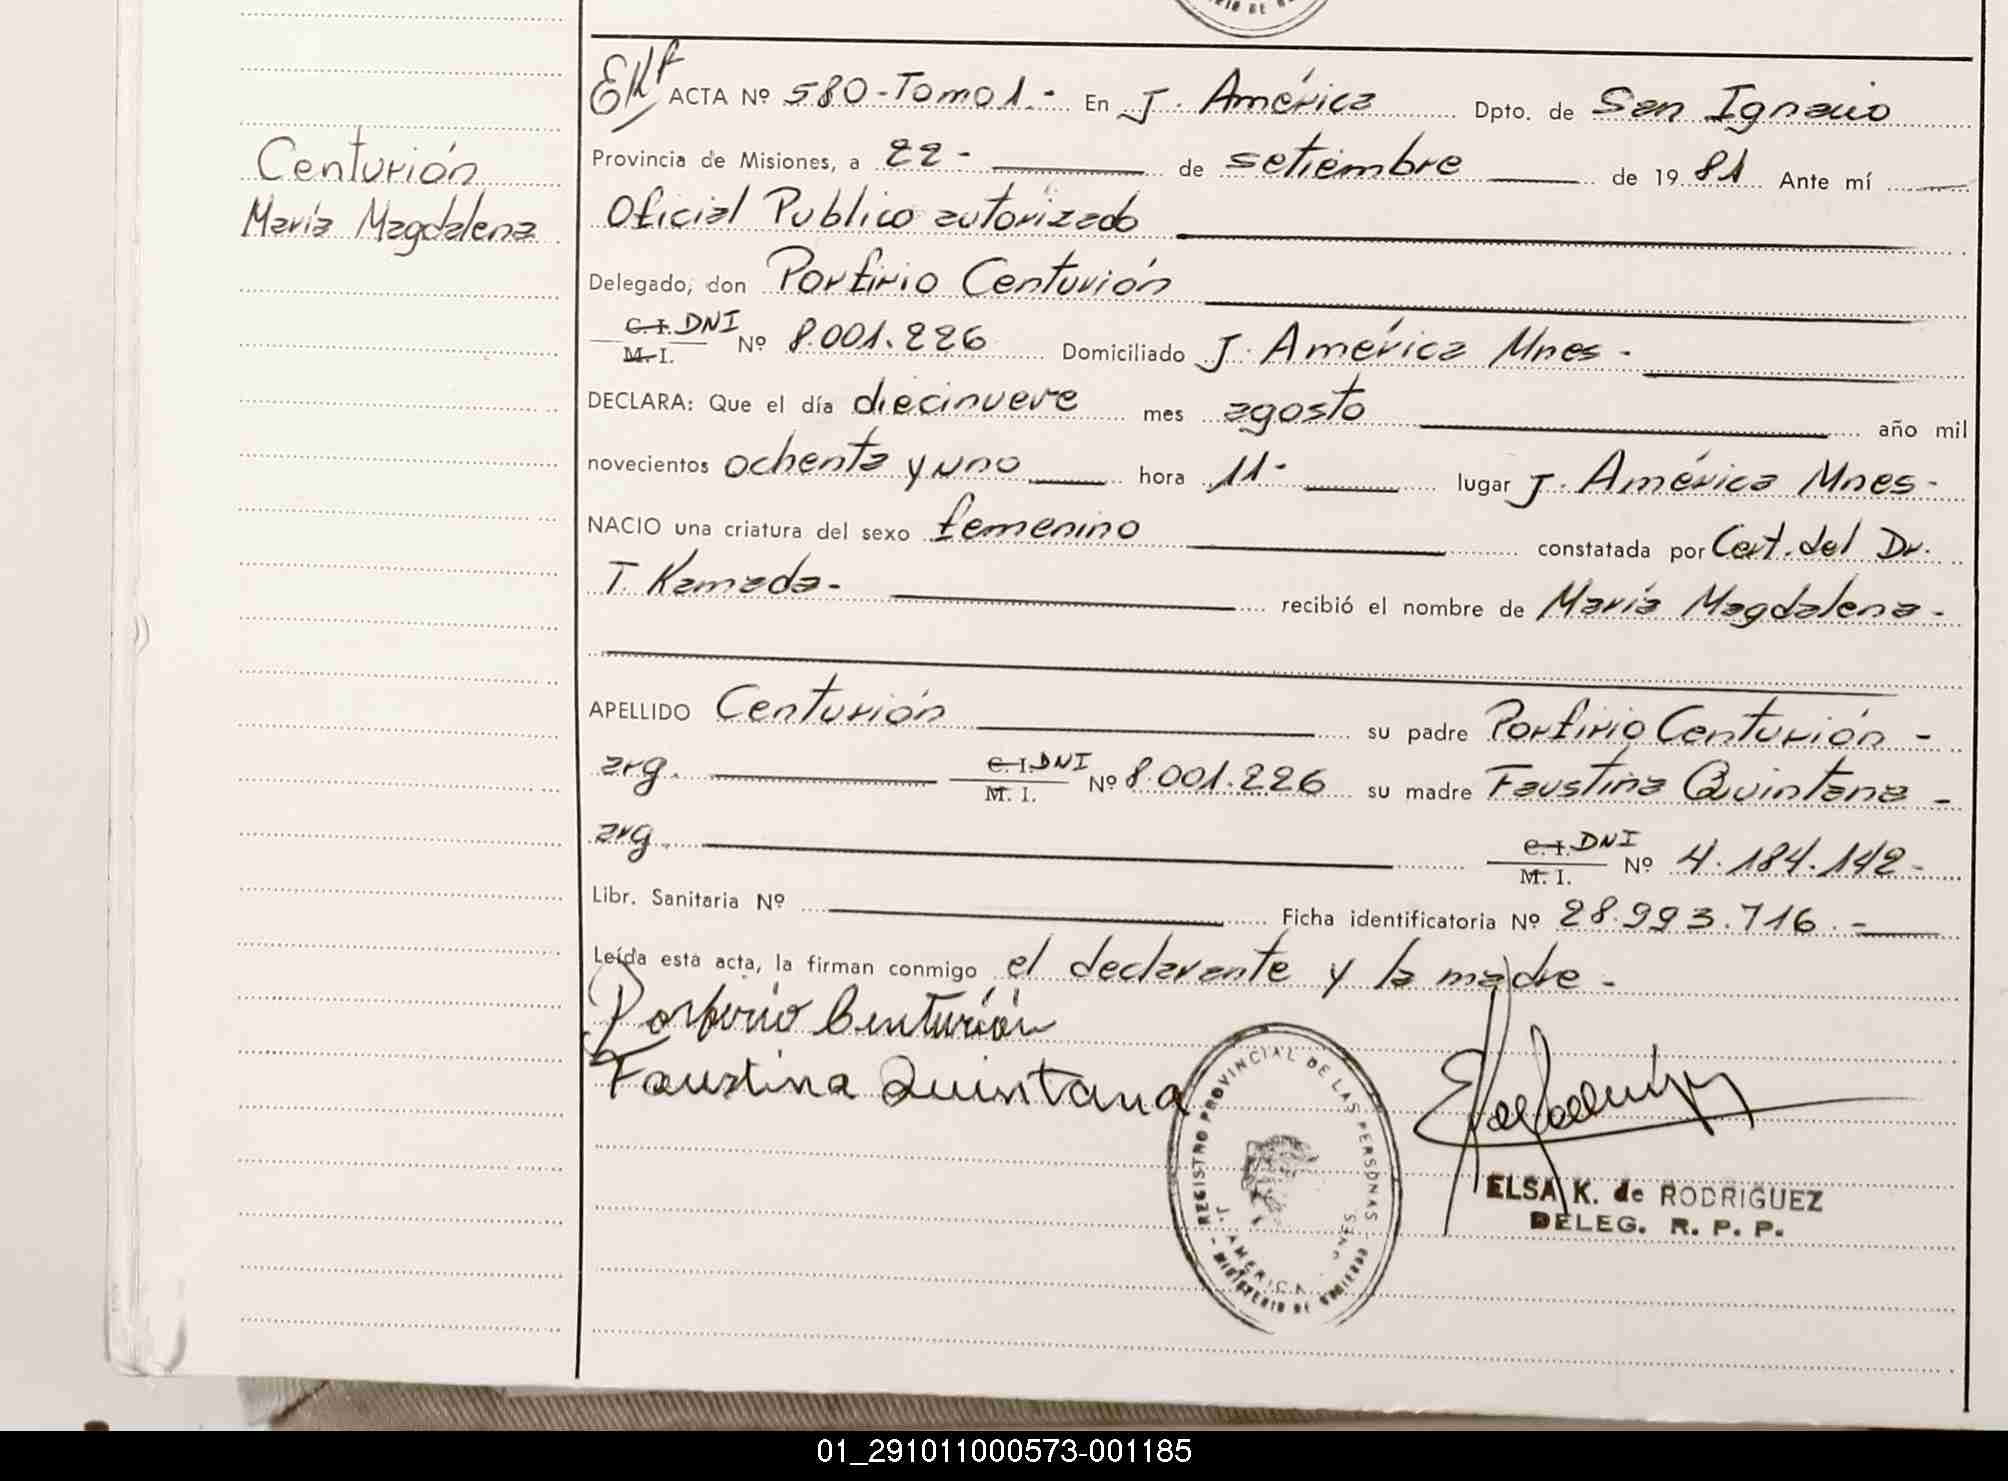 Centurión
María Magdalena
EKf ACTA Nº 580-Tomo 1.- En J. América Dpto. de San Ignacio
Provincia de Misiones, a 22- de setiembre de 1981 Ante mí
Oficial Publico autorizado
Delegado, don Porfirio Centurión
C.I. DNI
M. I. Nº 8.001.226 Domiciliado J. América Mnes-
DECLARA: Que el día diecinueve mes agosto año mil
novecientos ochenta y uno hora 11- lugar J. América Mnes-
NACIO una criatura del sexo femenino constatada por Cert. del Dr.
T. Kamada- recibió el nombre de María Magdalena-
APELLIDO Centurión su padre Porfirio Centurión-
arg. C. I. DNI
M. I. Nº 8.001.226 su madre Faustina Quintana-
arg. C. I. DNI
M. I. Nº 4.184.142-
Libr. Sanitaria Nº Ficha identificatoria Nº 28.993.716.-
Leída esta acta, la firman conmigo el declarante y la madre-
Porfirio Centurión
Faustina Quintana
REGISTRO PROVINCIAL DE LAS PERSONAS
J. AMERICA - MNES
MINISTERIO DE GOBIERNO
ELSA K. de RODRIGUEZ
DELEG. R. P. P.
01_291011000573-001185